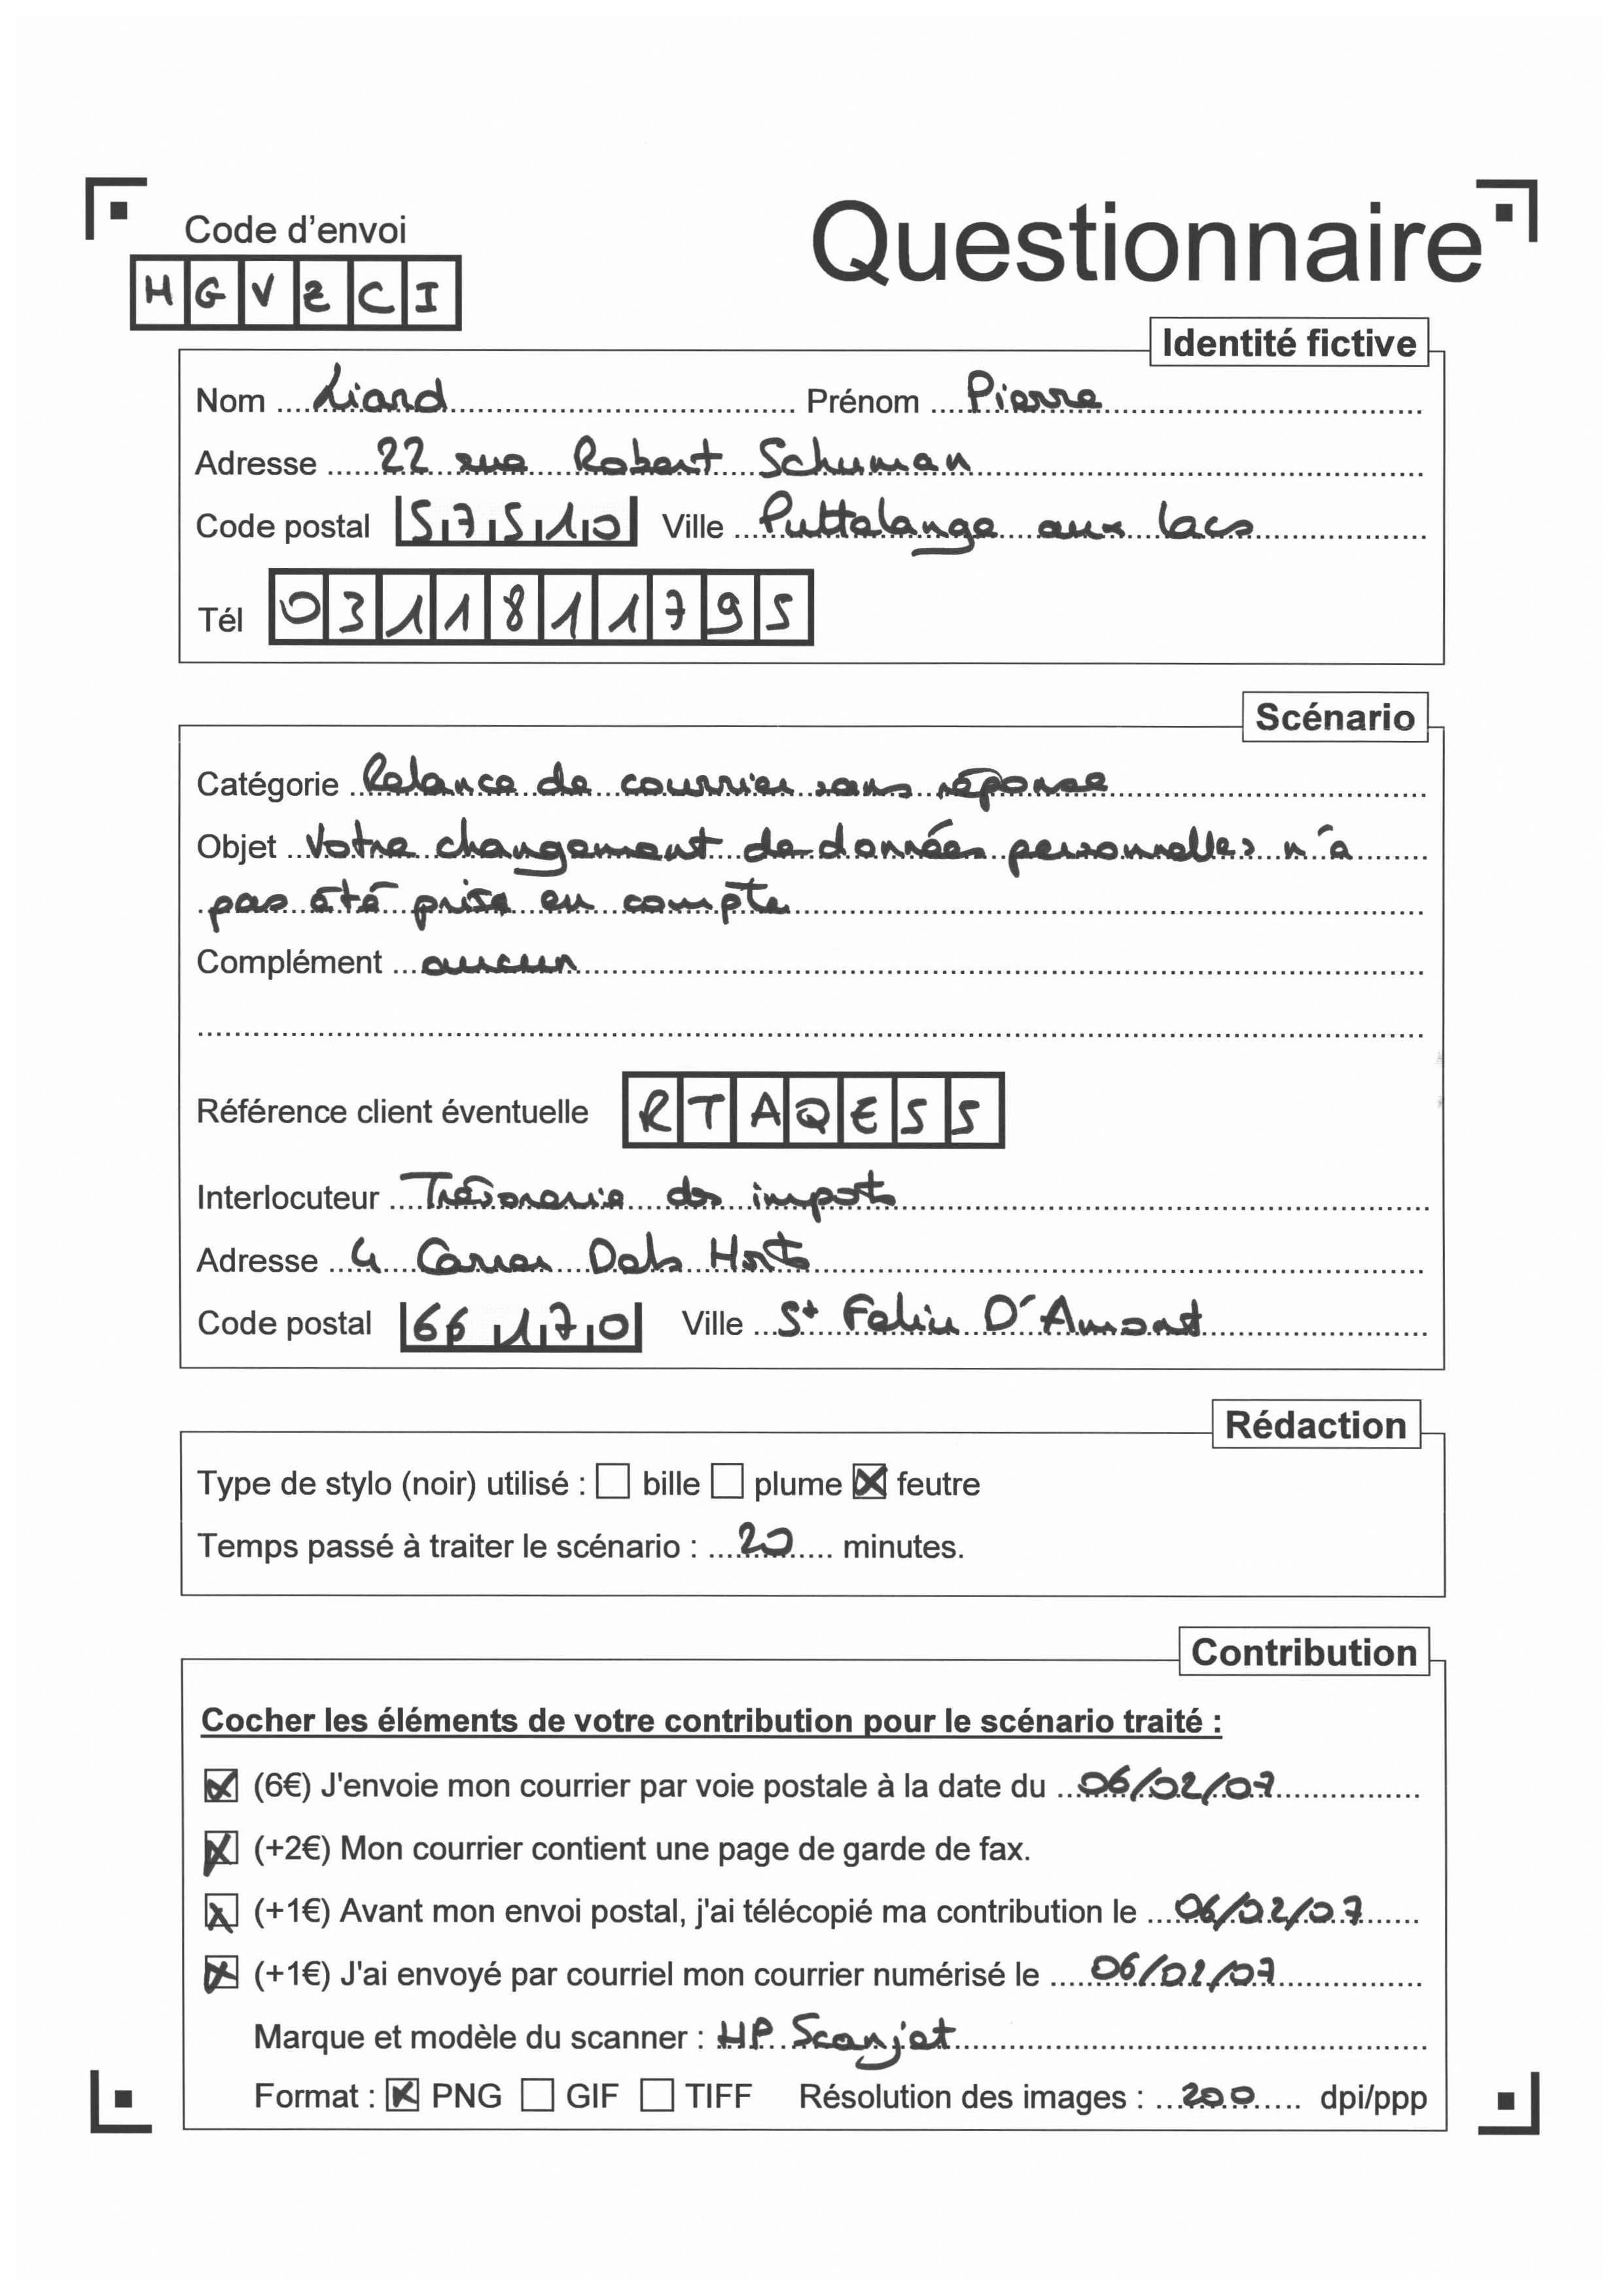 Questionnaire
Code d'envoi
HGVECI
Identité fictive
Nom Liard Prénom Pierre
Adresse 22 rue Robert Schuman
Code postal 57510 Ville Puttelange aux lacs
Tél 0311811795
Scénario
Catégorie Relance de courrier sans réponse
Objet Votre changement de données personnelles n'a
pas été prise en compte
Complément aucun
Référence client éventuelle RTAQESS
Interlocuteur Trésorerie des impots
Adresse 4 Carrer Dels Horts
Code postal 66170 Ville St Feliu D'Amont
Rédaction
Type de stylo (noir) utilisé : bille plume feutre
Temps passé à traiter le scénario : 20 minutes.
Contribution
Cocher les éléments de votre contribution pour le scénario traité :
(6€) J'envoie mon courrier par voie postale à la date du 06/02/07
(+2€) Mon courrier contient une page de garde de fax.
(+1€) Avant mon envoi postal, j'ai télécopié ma contribution le 06/02/07
(+1€) J'ai envoyé par courriel mon courrier numérisé le 06/02/07
Marque et modèle du scanner : HP Scanjet
Format : PNG GIF TIFF Résolution des images : 200 dpi/ppp